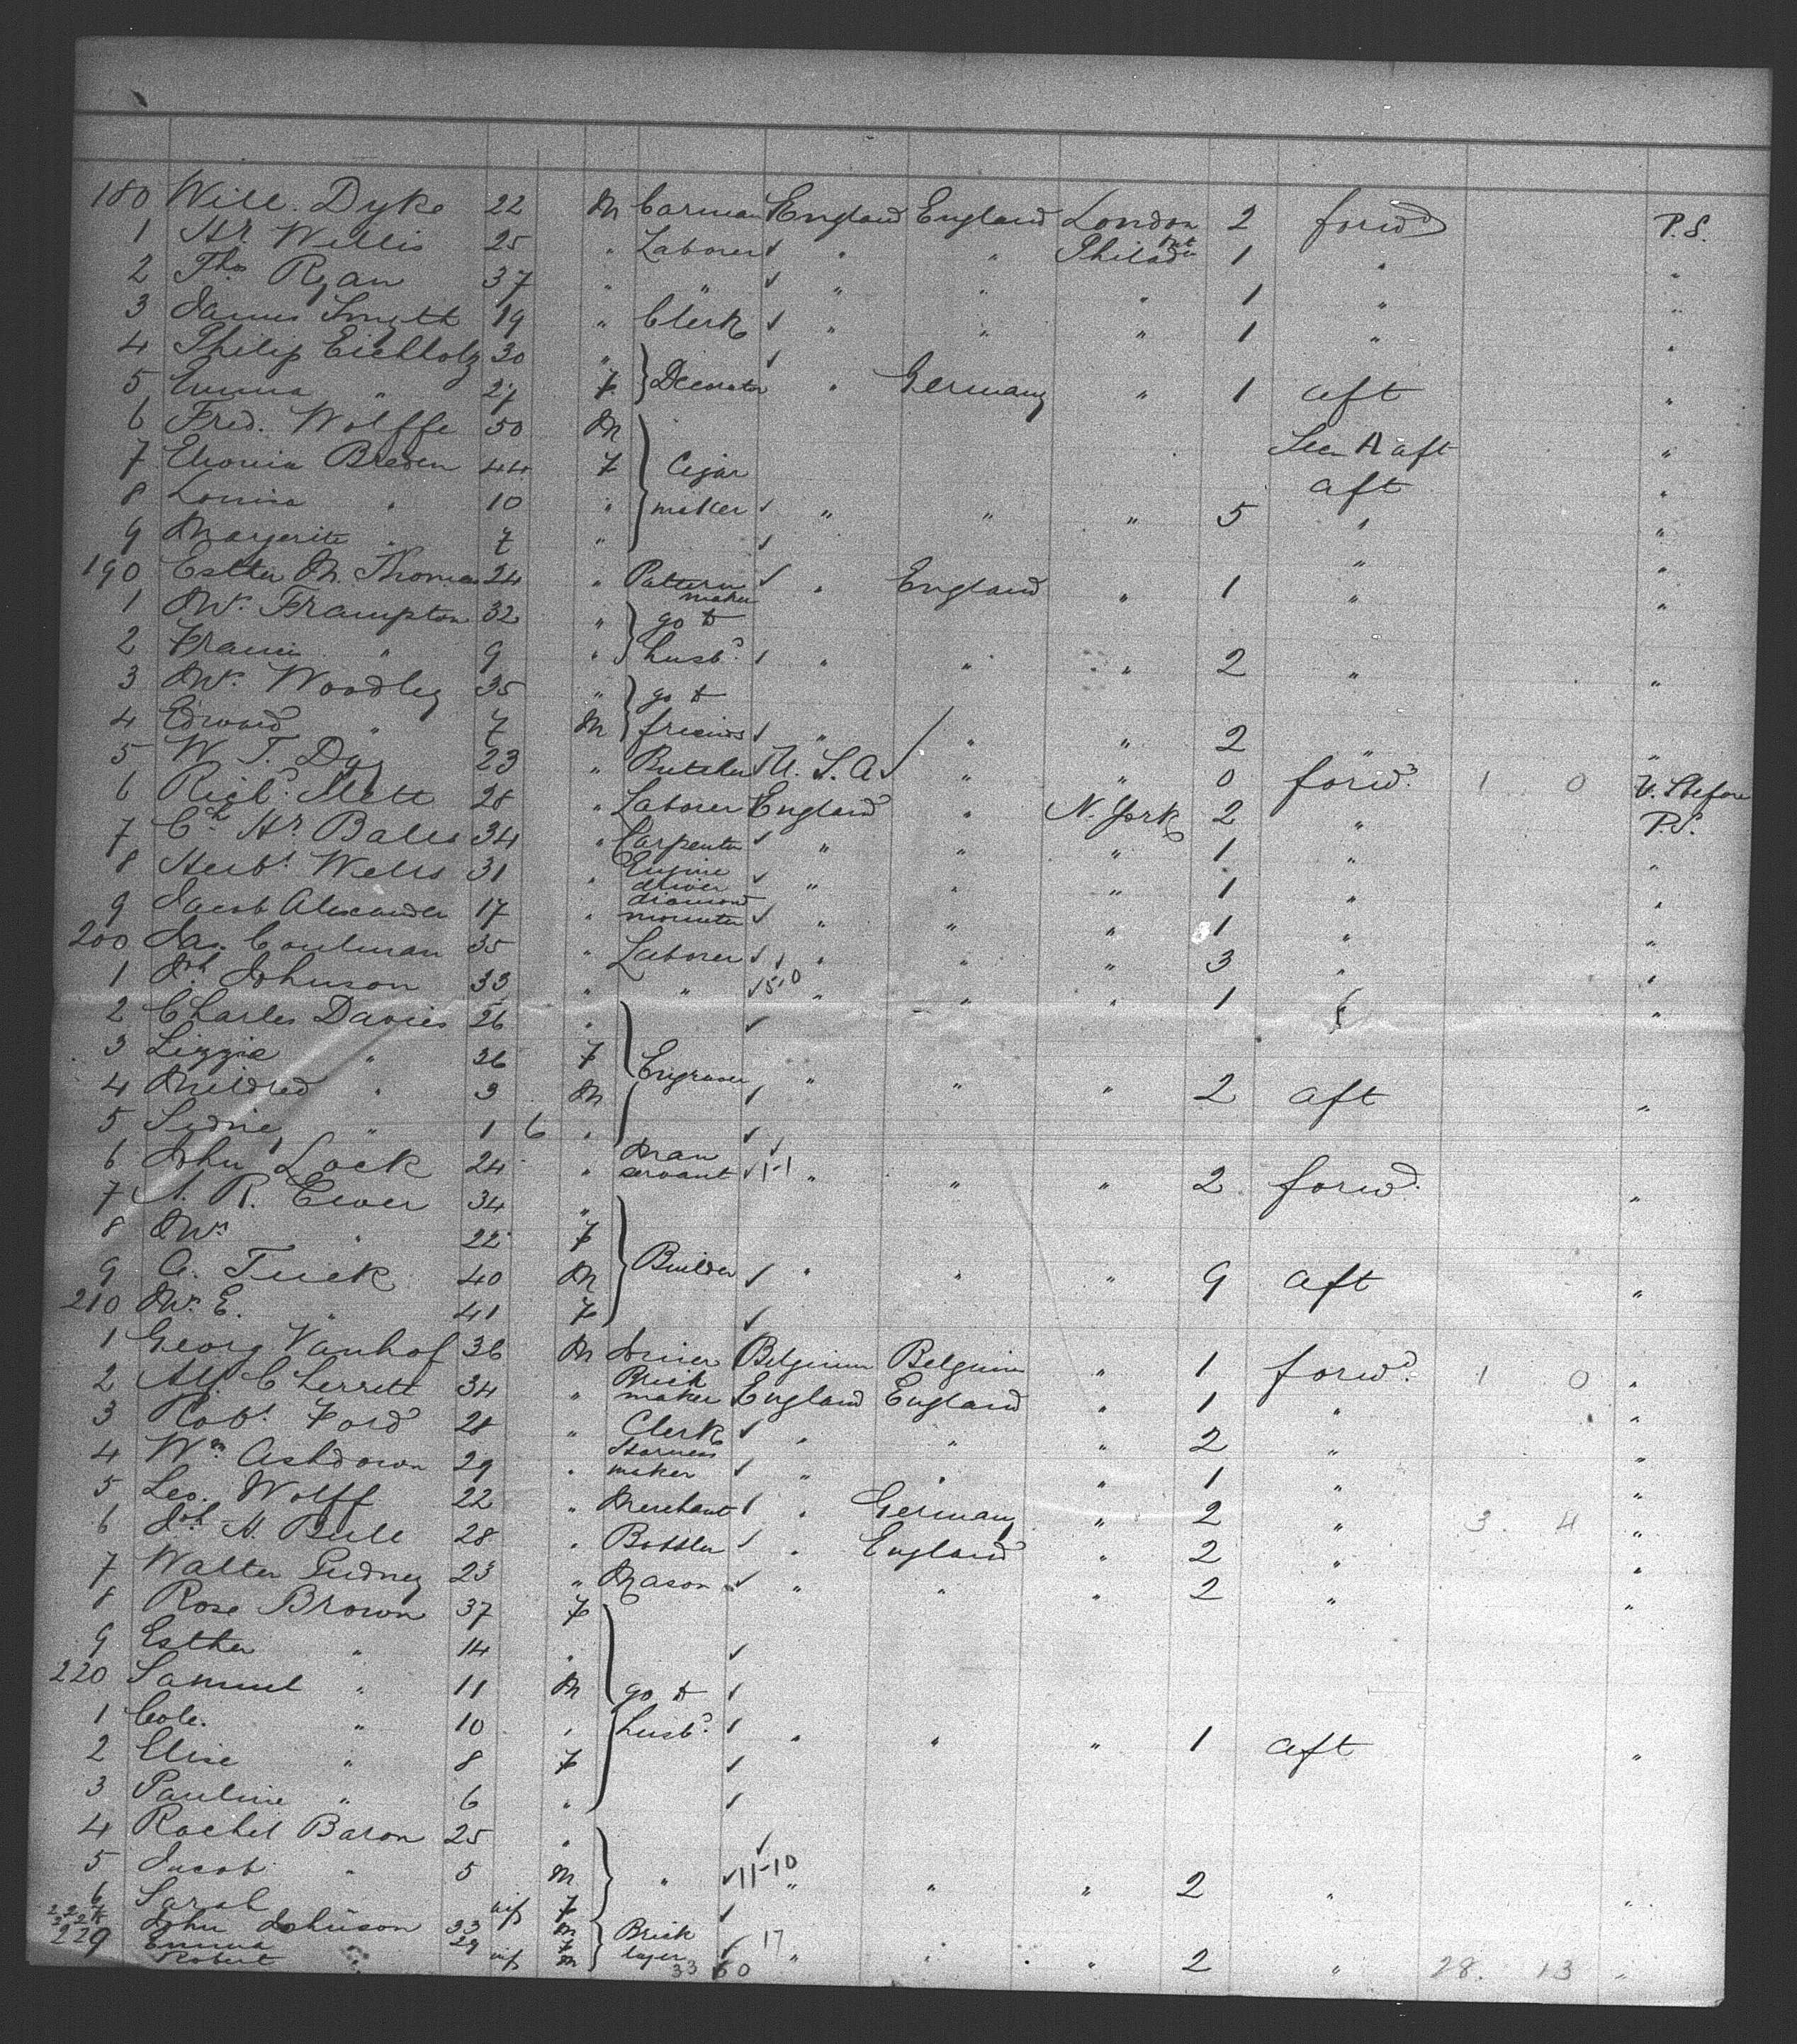 180 Will. Dyke 22 M Carman England England London 2 forwd P.S.
1 Hy. Willis 25 " Laborer " " Philada 1 " "
2 Thos Ryan 37 " " " " " 1 " "
3 James Smyth 19 " Clerk " " " 1 " "
4 Philip Eichholz 30 "
5 Emma " 27 F Decorator " Germany " 1 aft "
6 Fred. Wolffe 50 M aft "
7 Breden 44 F Cigar aft "
8 Louisa " 10 " maker " " " 5 " "
9 Margerite " 7 " " "
190 Esther M. Thomas 24 " Pattern maker " England " 1 " "
1 Mrs. Frampton 32 " go to
2 Francis " 9 " husbd. " " " 2 " "
3 Mrs. Woodley 35 " go to
4 Edward " 7 M friends " " " 2 " "
5 W. T. Day 23 " Butcher U. S. A " " 0 forwd. 1 0 U. S. before
6 Richd. Mett 28 " Laborer England " N. York 2 " P.S.
7 Ch. Hy. Bales 34 " Carpenter " " " 1 " "
8 Herbt. Wells 31 " Engine driver " " " 1 " "
9 Jacob Alexander 17 " diamond mounter " " " 1 " "
200 Jas. Coulman 35 " Laborer " " " 3 " "
1 Jh. Johnson 33 " " 5-0 " " " 1 "
2 Charles Davies 26 "
3 Lizzie " 36 F Engraver " "
4 Mildred " 3 M " 2 aft "
5 Sidney " 1 6 "
6 John Lock 24 " Man servant 1-1 " " " 2 forwd. "
7 R. Ewer 34 "
8 Mrs " 22 F
9 A. Tuck 40 M Builder " " " 9 aft "
210 Mrs. E. " 41 F
1 Georg Vanhof 36 M Belgium Belgium " 1 forwd. 1 0 "
2 Alf. Cherrett 34 " Brick maker England England " 1 " "
3 Robt. Ford 28 " Clerk " " " 2 " "
4 Wm Ashdown 29 " Harness maker " " " 1 " "
5 Leo. Wolff 22 " Merchant " Germany " 2 " 3 4 "
6 Jh. H. Bull 28 " Bottler " England " 2 " "
7 Walter Gidney 23 " Mason " " " 2 " "
8 Rose Brown 37 F
9 Esther " 14 "
220 Samuel " 11 M go to
1 Cole. " 10 " husbd. " " " 1 aft "
2 Elise " 8 F
3 Pauline " 6 "
4 Rachel Baron 25 "
5 Jacob " 5 M " 11-10 " " " 2 " "
6 Sarah inf F
John Johnson 33 M Brick
Emma 29 F layer 17 " " " 2 " 28. 13 "
229 Robert " inf M 33 50